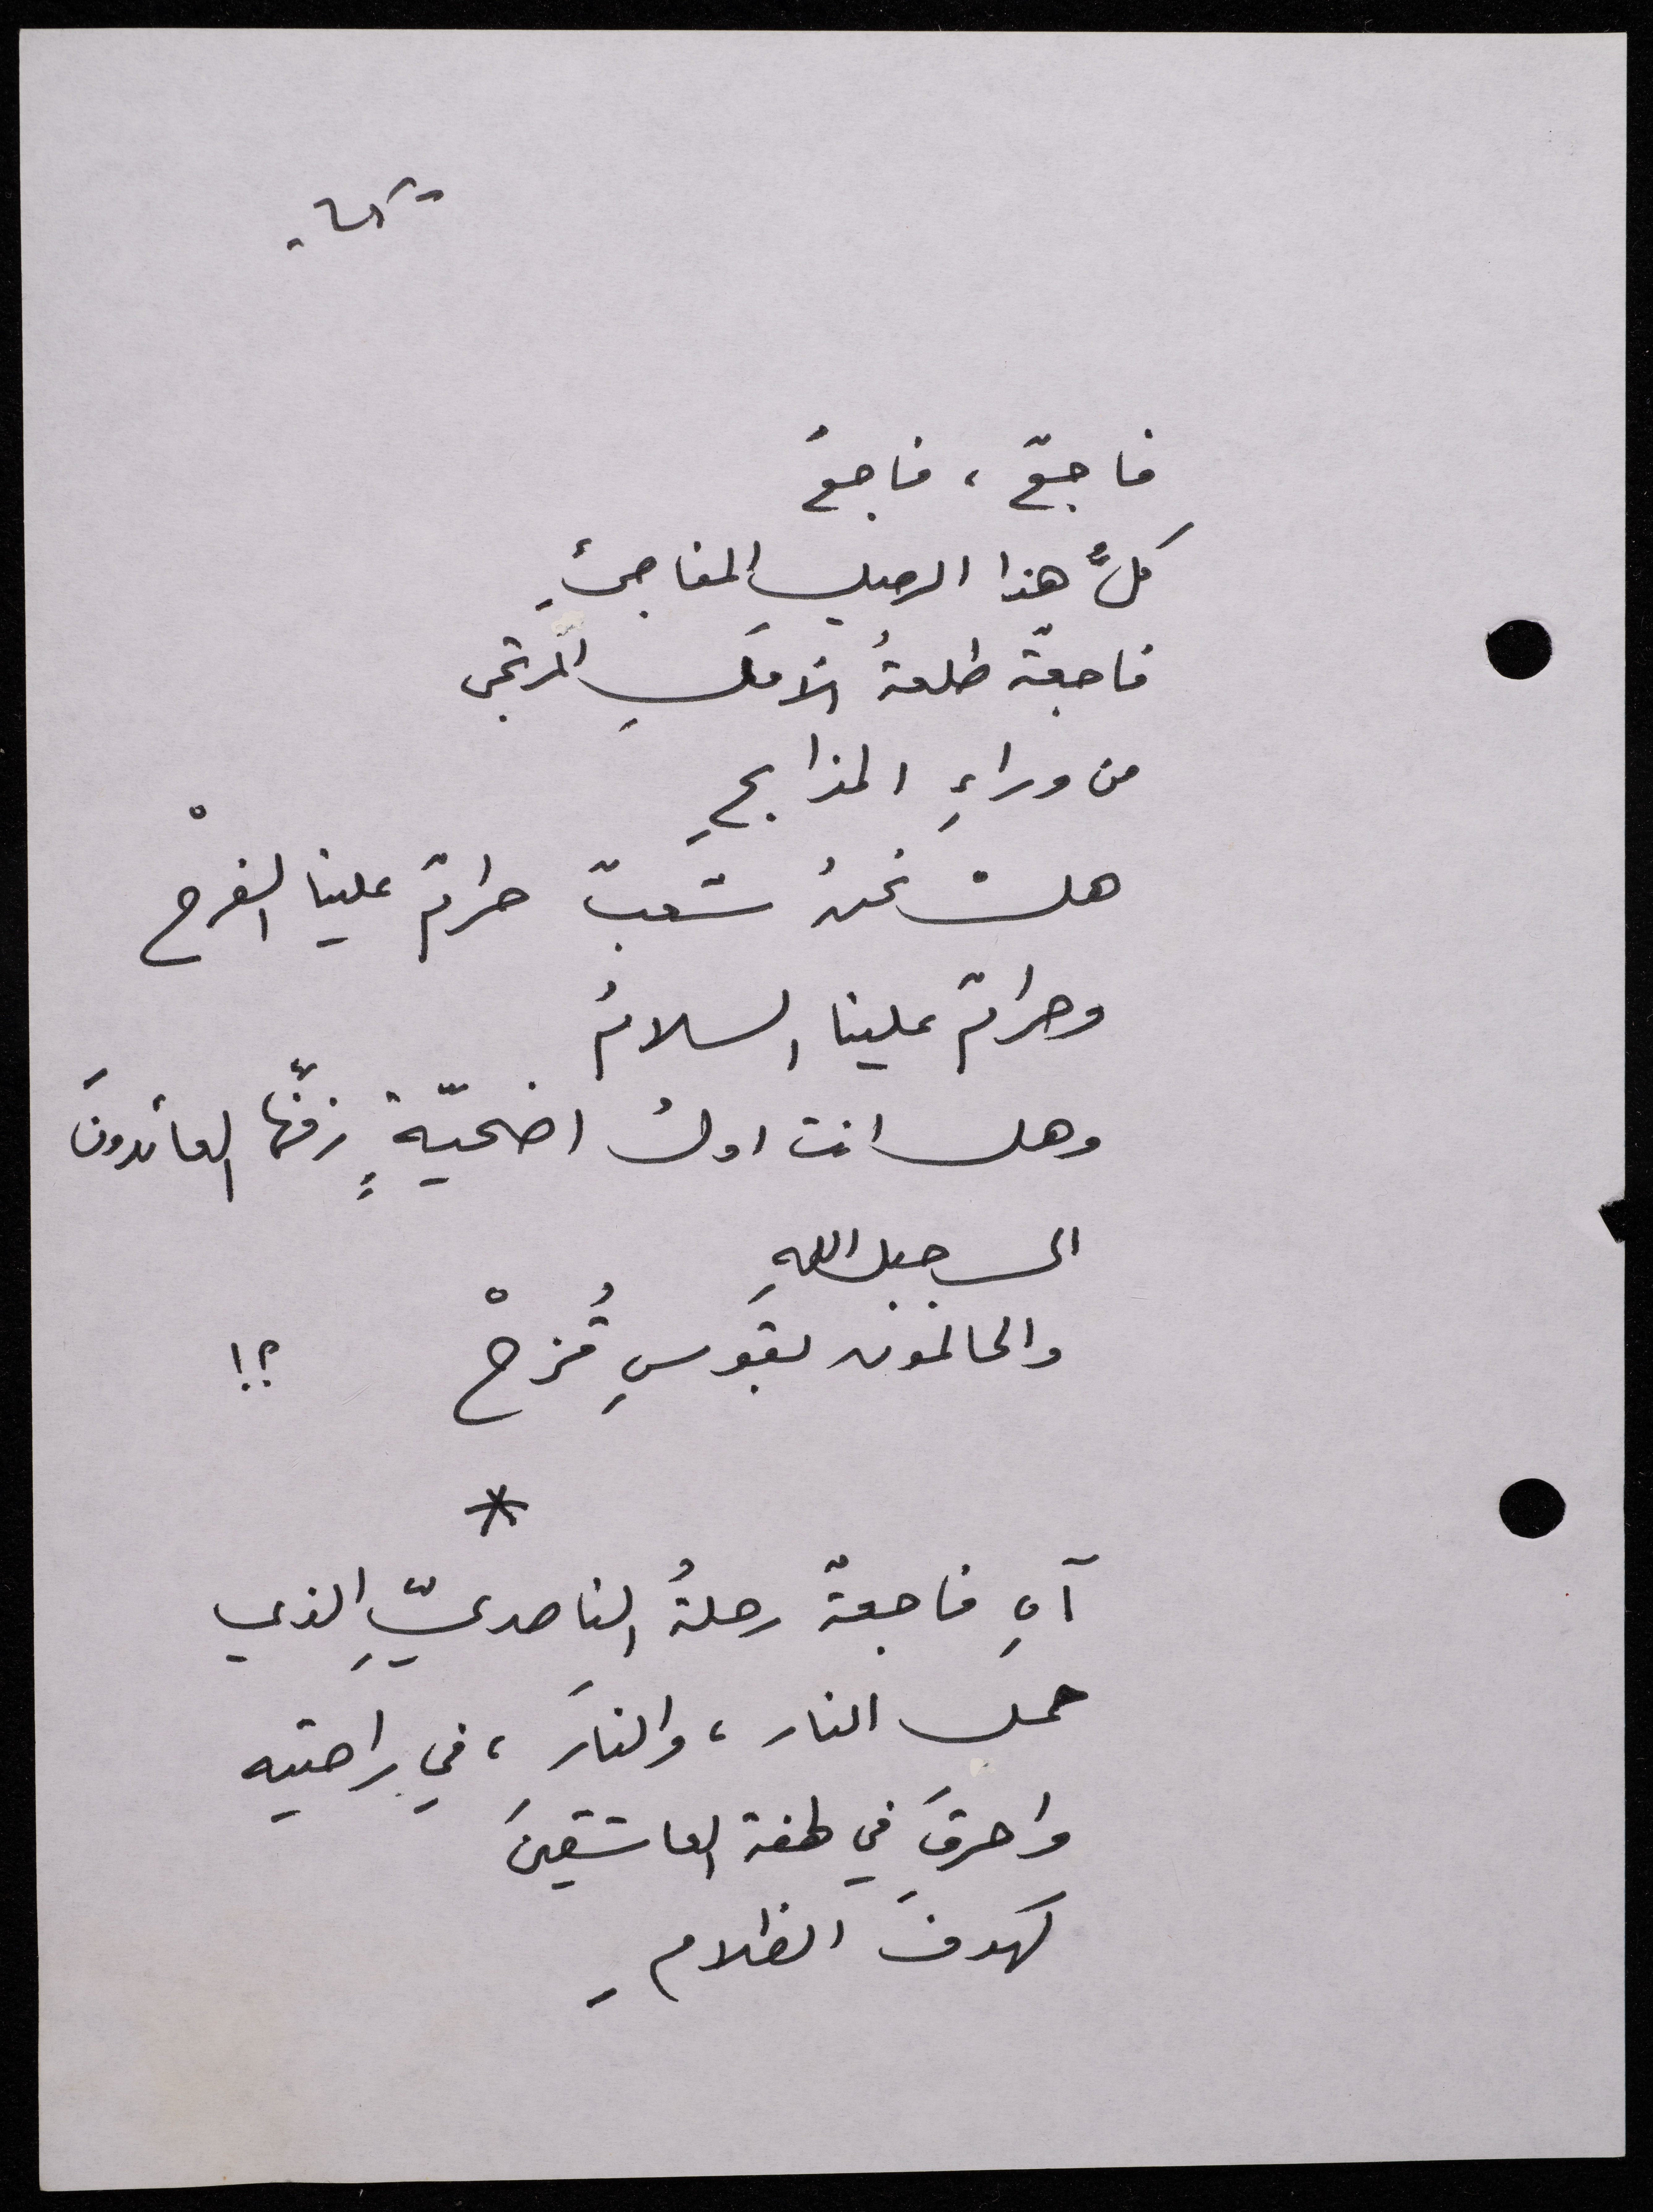 فاجعٌ، فاجعٌ
كلُّ هذا الرحيل المفاجئِ
فاجعةٌ طلعةُ الأملِ المرتجى
من وراءِ المذابحِ
هلْ نحنُ شعبٌ حرامٌ علينا الفرحْ
وحرامٌ علينا السلامُ
وهل انت اولُ اضحيّةٍ زفّها العائدونَ
الى جبل اللهِ
والحالمون بقوسِ قُزحْ ؟!
*
آهِ فاجعةٌ رحلةُ الناصريِّ الذي
حمل النار، والنارَ، في راحتيه
واحرقَ في لهفة العاشقينَ
كهوفَ الظلامِ